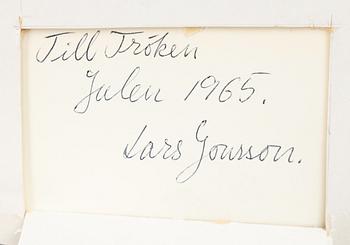 Till Fröken
Julen 1965.
Lars Gynsson.